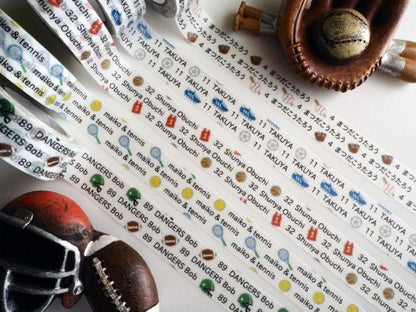 4 まつだこうたろう 4 まつだこうたろう 4 まつだこうたろう 4 まつだこうたろう
11 TAKUYA 11 TAKUYA 11 TAKUYA 11 TAKUYA
32 Shunya Obuchi 32 Shunya Obuchi 32 Shunya Obuchi 32 Shunya Obuchi
maiko & tennis maiko & tennis maiko & tennis maiko & tennis
89 DANGERS Bob 89 DANGERS Bob 89 DANGERS Bob 89 DANGERS Bob